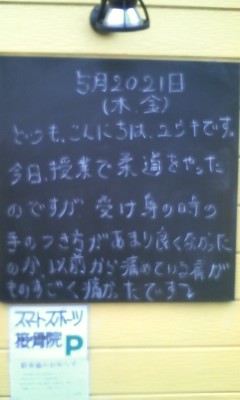 5月20 21日
(木、金)
どうも、こんにちは、ユウキです。
今日、授業で柔道をやった
のですが 受け身の時の
手のつき方があまり良くなかった
のか、以前から痛めている肩が
ものすごく痛かったです
スマートスポーツ
接骨院 P